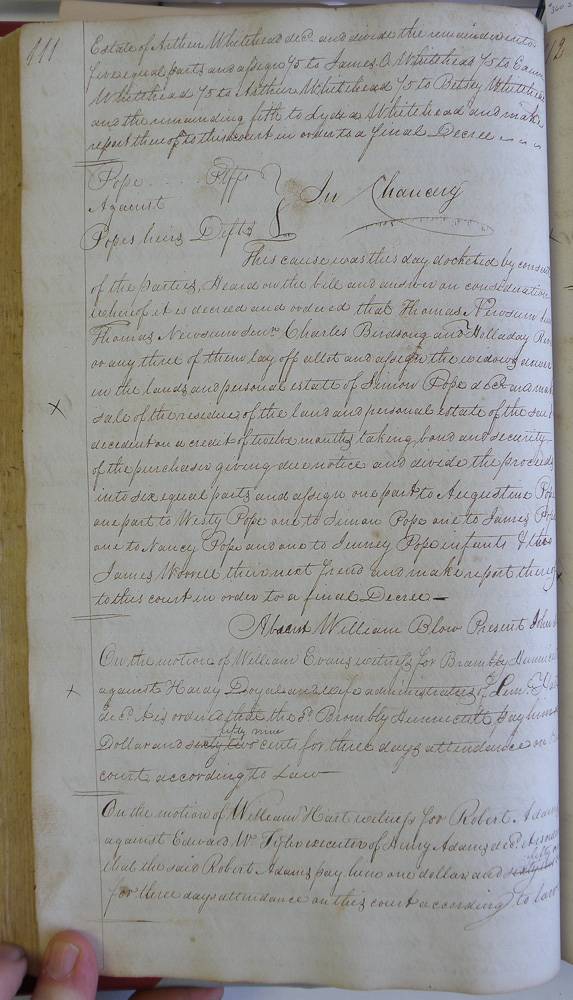 111
Estate of Arthur Whitehead decd. and divide the remainder into
five equal parts and assign 1/5 to James A Whitehead 1/5 to
Whitehead 1/5 to Arthur Whitehead 1/5 to Betsey Whitehead
and the remainding fifth to Lydia Whitehead and make
report thereof to this court in order to a final Decree
Pope Plffs
Against In Chancery
Popes heirs Defts
This cause was this day docketed by consent
of the parties, Heard on the bill and answer on consideration
whereof it is decreed and ordered that Thomas Newsum
Thomas Newsum Senr. Charles Birdsong and Holladay
or any three of them lay off allot and assign the widows dower
in the lands and personal estate of Simon Pope decd. and make
sale of the residue of the land and personal estate of the said
decedent on a credit of twelve months taking bond and security
of the purchaser giving due notice and divide the proceeds
into six equal parts and assign one part to Augustine Pope
one part to Westy Pope one to Simon Pope one to James Pope
one to Nancy Pope and one to Jenney Pope infants &
James Worrell their next friend and make report thereof
to this court in order to a final Decree
Absent William Blow Present John
On the motion of William Evans witness for Brambly
against Hardy Doyal and wife administratrix of
decd. it is ordered that the sd. Brombly pay him
fifty nine
Dollar and sixty two cents for three days attendance on
court according to Law
On the motion of William Hart witness for Robert Adams
against Edwd. W. executor of Henry Adams decd. it is ordered
that the said Robert Adams pay him one dollar and
for three days attendance on this court according to law